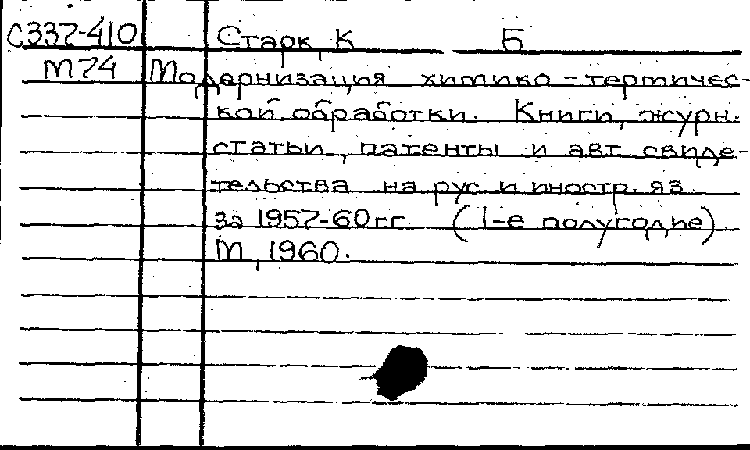 С337-410 Старк, К Б
М74 Модернизация химико-термичес-
кой обработки. Книги, журн.
статьи, патенты и авт свиде-
тельства на рус и иностр. яз.
за 1957-60гг (1-е полугодие)
М, 1960.